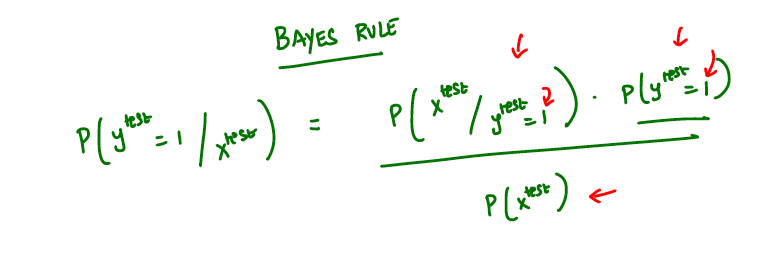 BAYES RULE
P(y^test = 1 / x^test) = P(x^test / y^test = 1) . P(y^test = 1)
P(x^test)